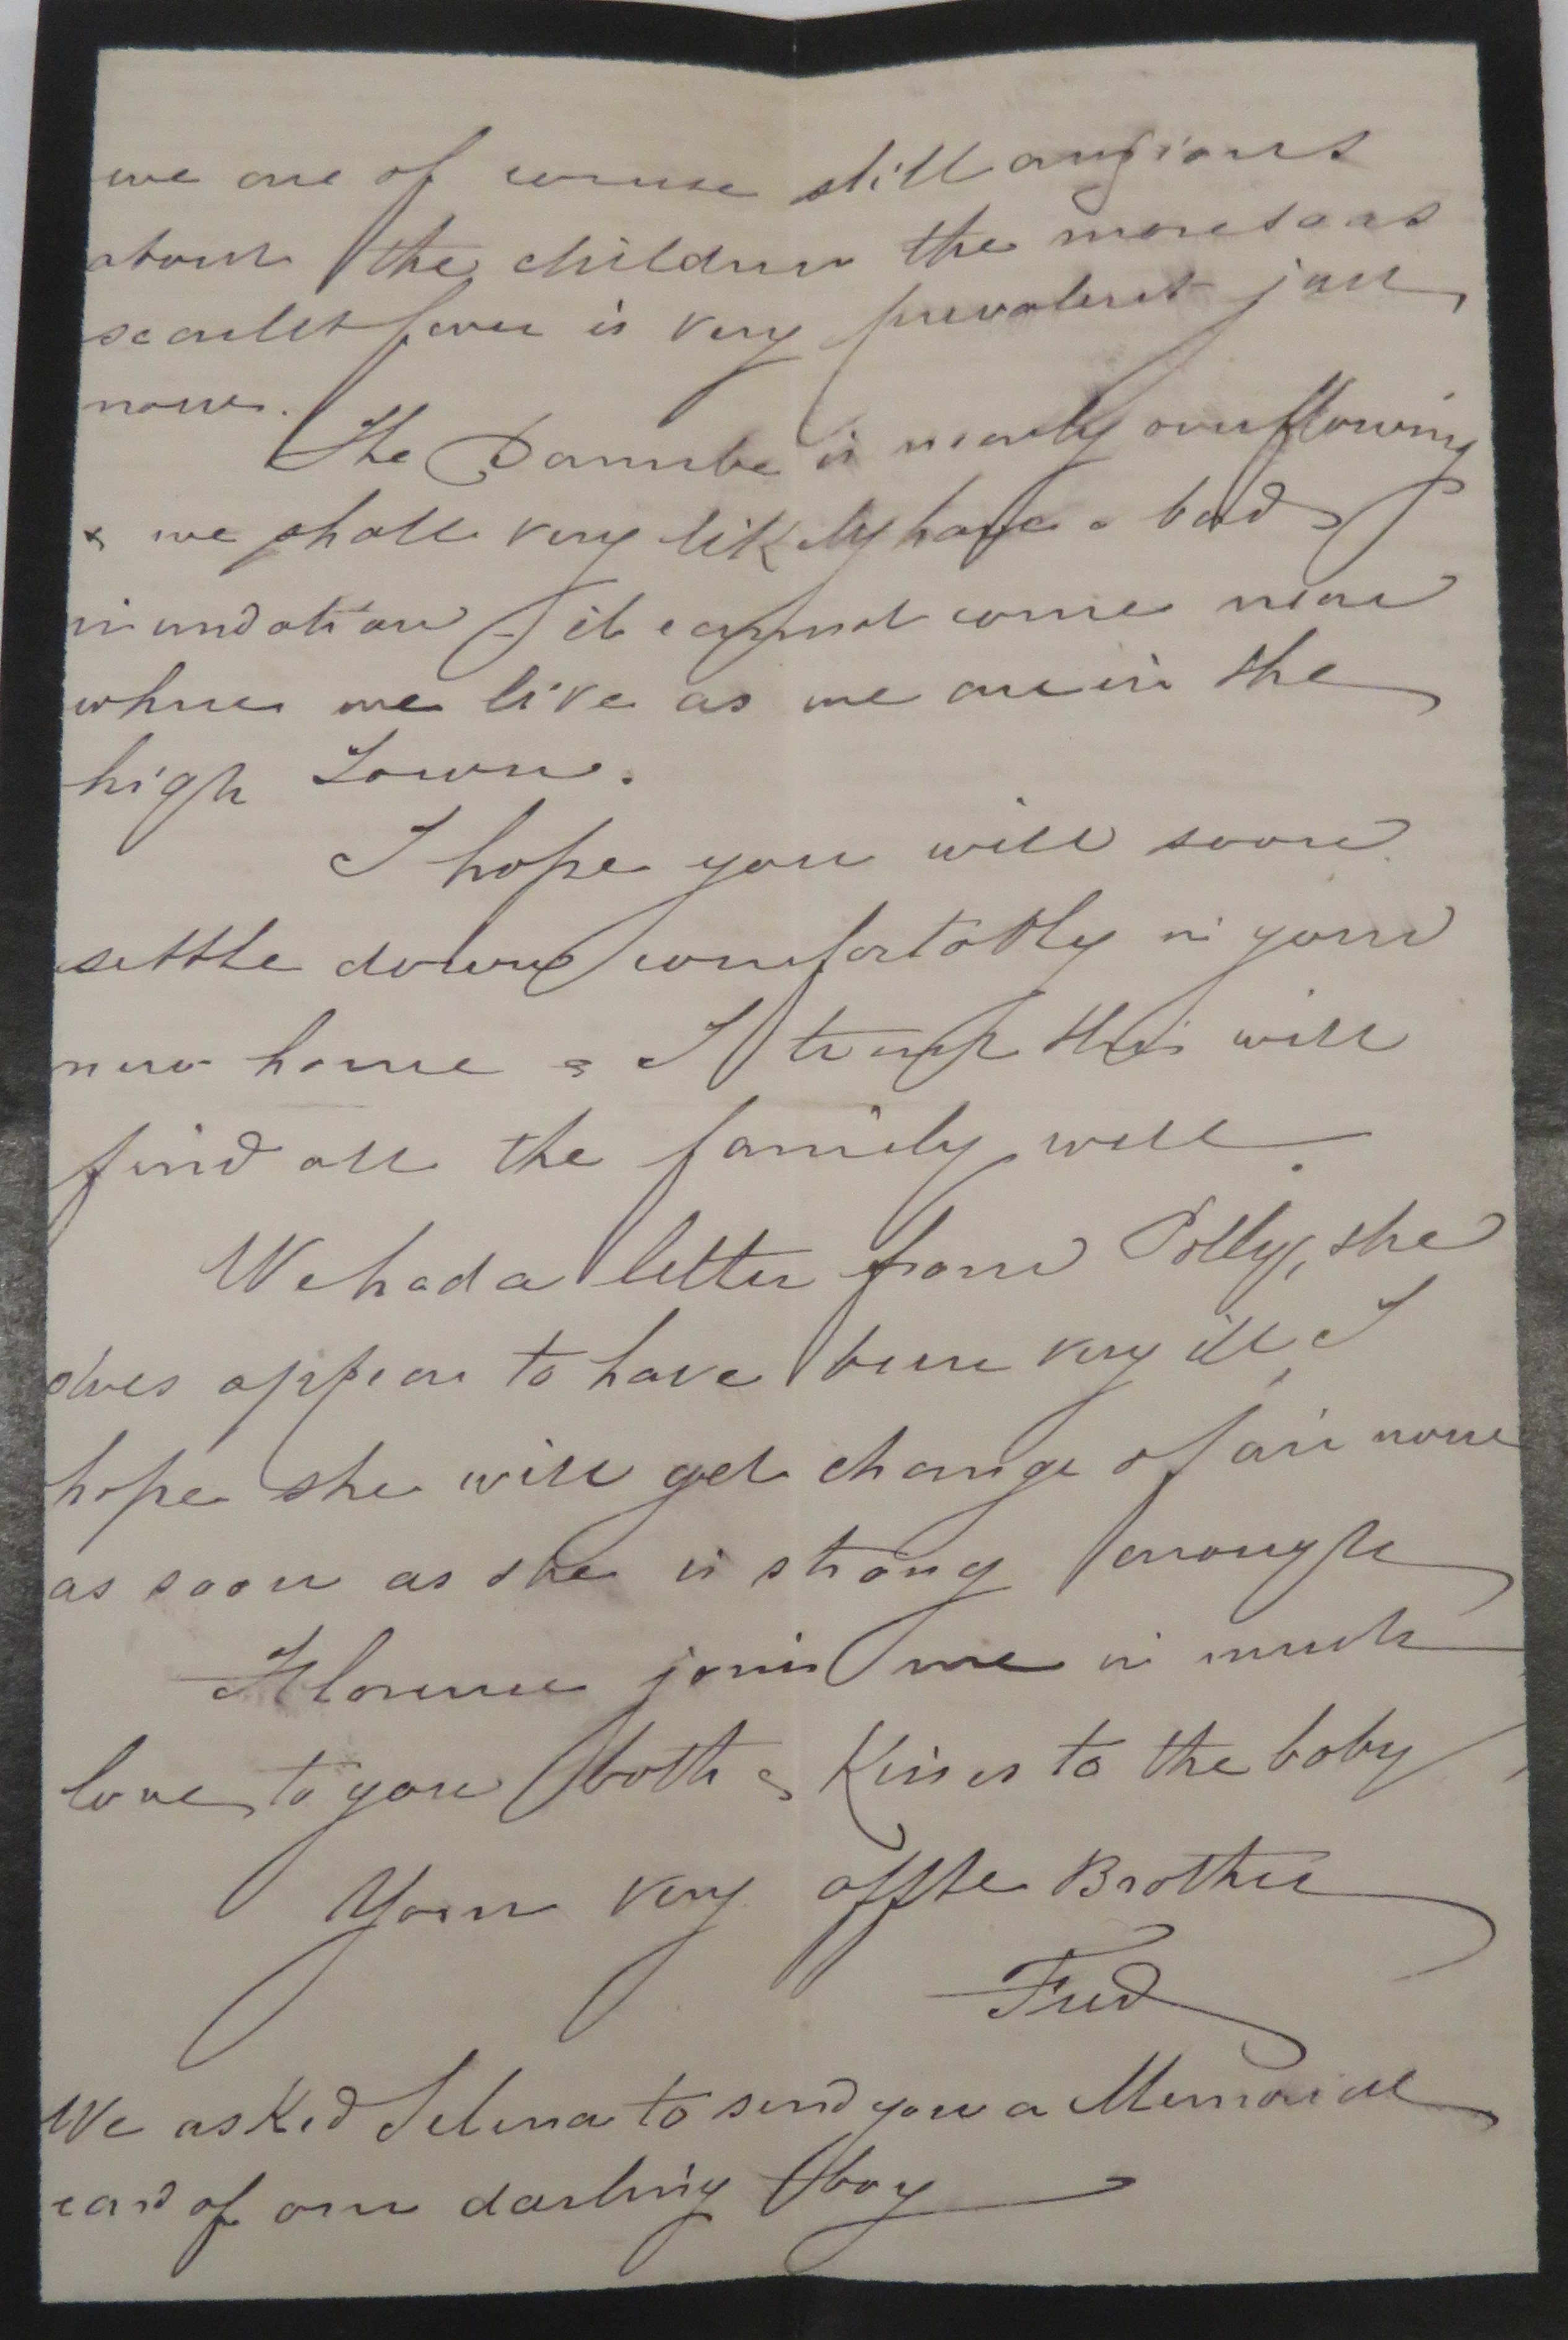 we are of course still anxious
about the children the more so as
scarlet fever is very prevalent just
now.
The Danube is nearly overflowing
& we shall very likely have a bad
inundation - it cannot come near
where we live as we are in the
high Town.
I hope you will soon
settle down comfortably in your
new home & I trust this will
find all the family well.
We had a letter from Polly, she
does appear to have been very ill, I
hope she will get change of air now
as soon as she is strong enough
Florence joins me in much
love to you both & Kisses to the baby
Your very affte Brother
Fred
We asked Selina to send you a Memorial
card of our darling boy